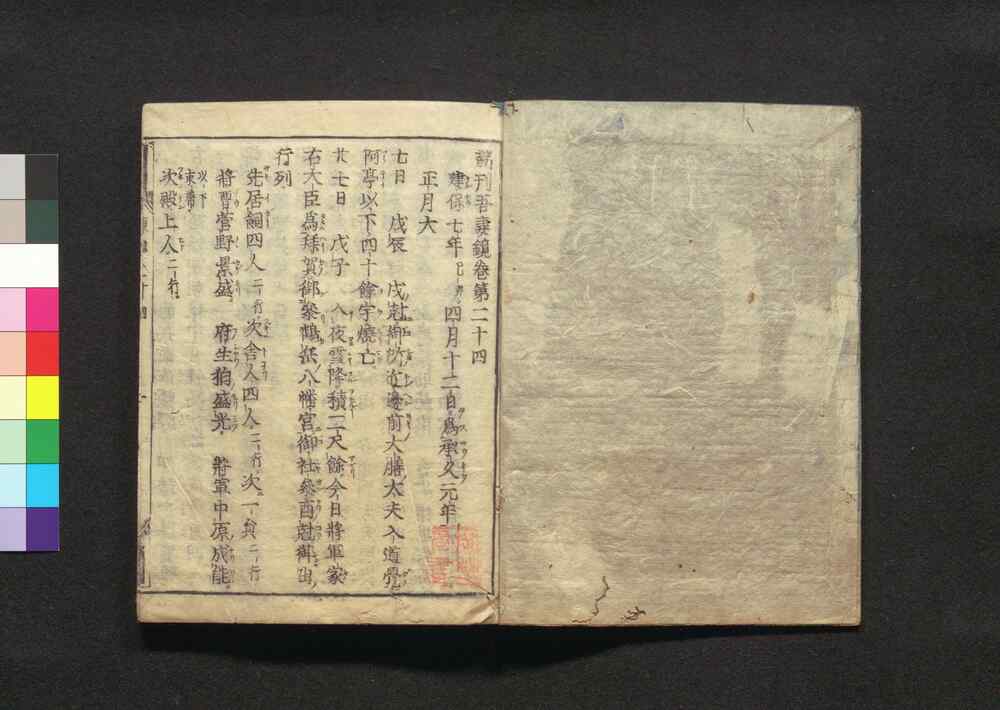 新刊吾妻鏡卷第二十四
建保七年己卯四月十二日爲承久元年
正月大
七日　戊辰　戌尅御所近邊前大膳大夫入道覺
阿亭以下四十餘宇燒亡
廿七日　戊子　入夜雪降積二尺餘今日將軍家
右大臣爲拜賀御參鶴岳八幡宮御社參酉尅御出
行列
先居飼四人二行次舍人四人二行次一員二行
將曹菅野景盛　府生狛盛光　將軍中原成能
以下束帶
次殿上人二行